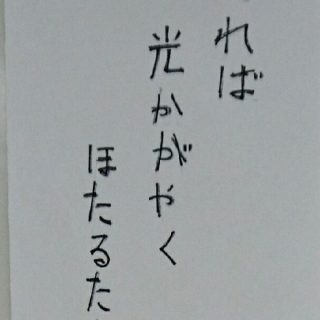 れば
光かがやく
ほたるた